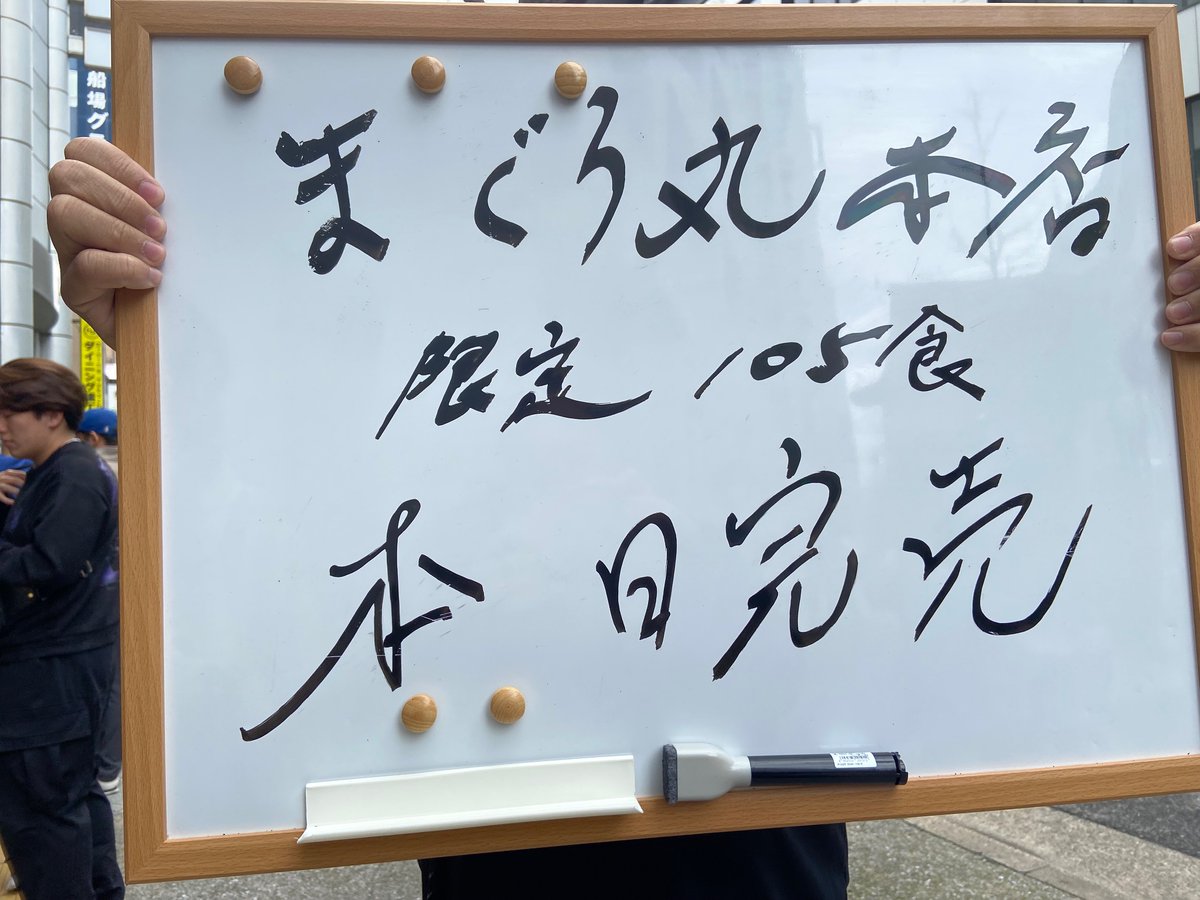 まぐろ丸本店
限定 105食
本日完売
船場グ
ダイニング